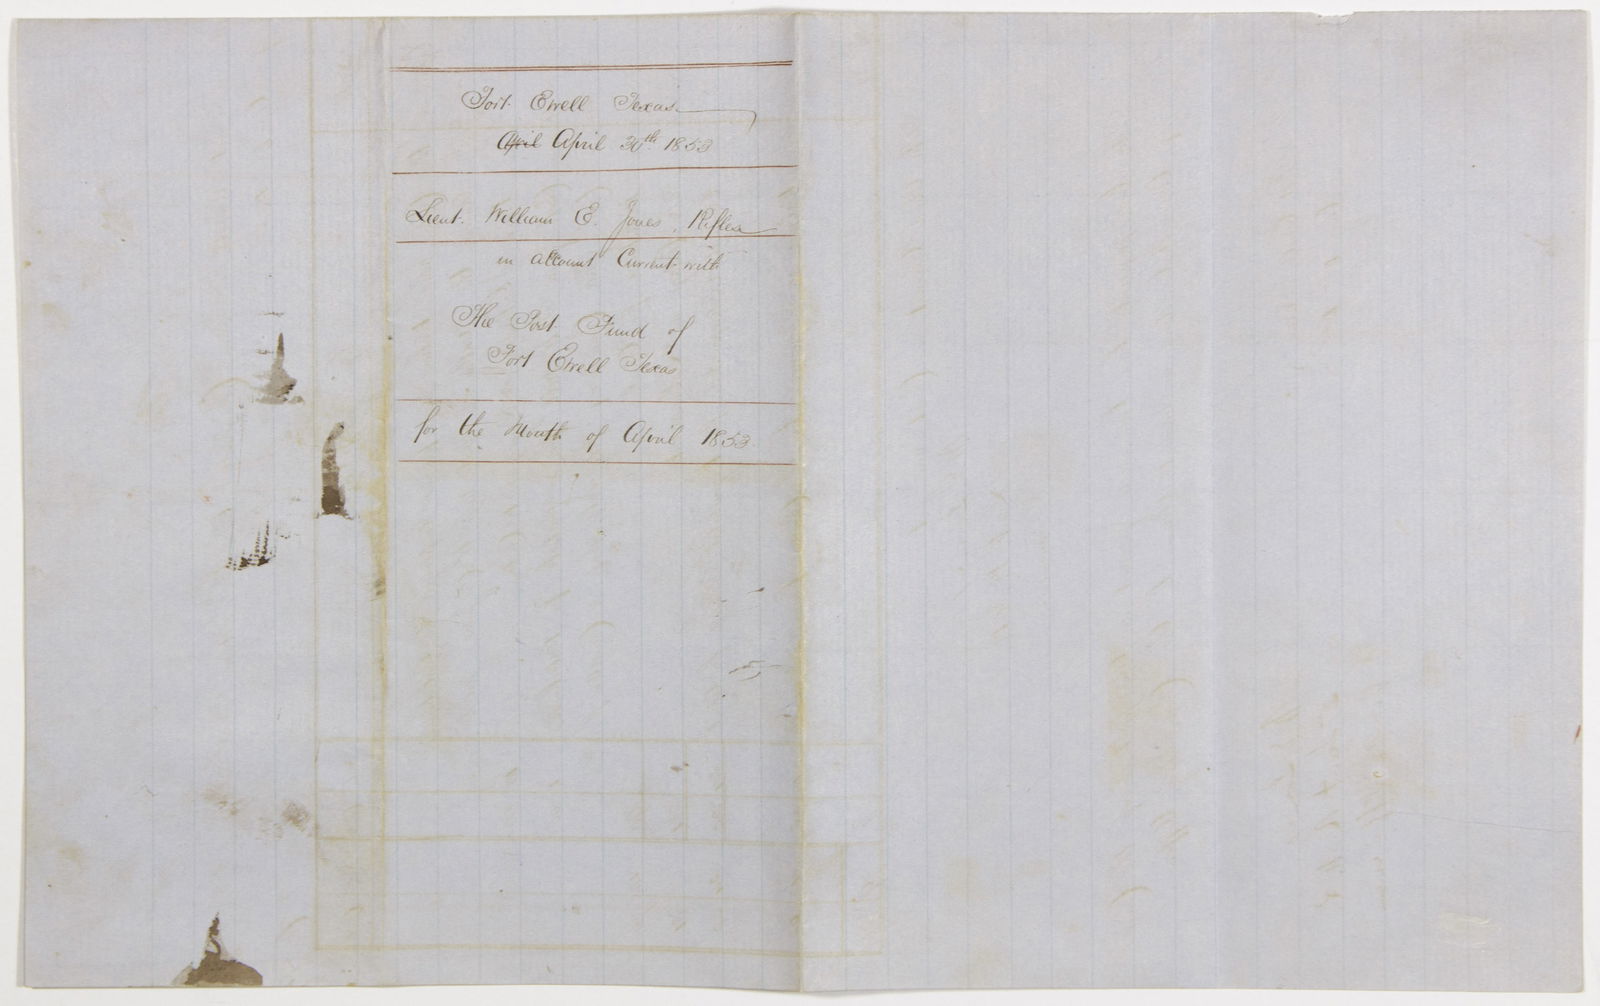 Fort Ewell Texas
April April 30th 1853
Lieut. William E. Jones, Rifles
in account Current with
The Post Fund of
Fort Ewell Texas
for the Month of April 1853.